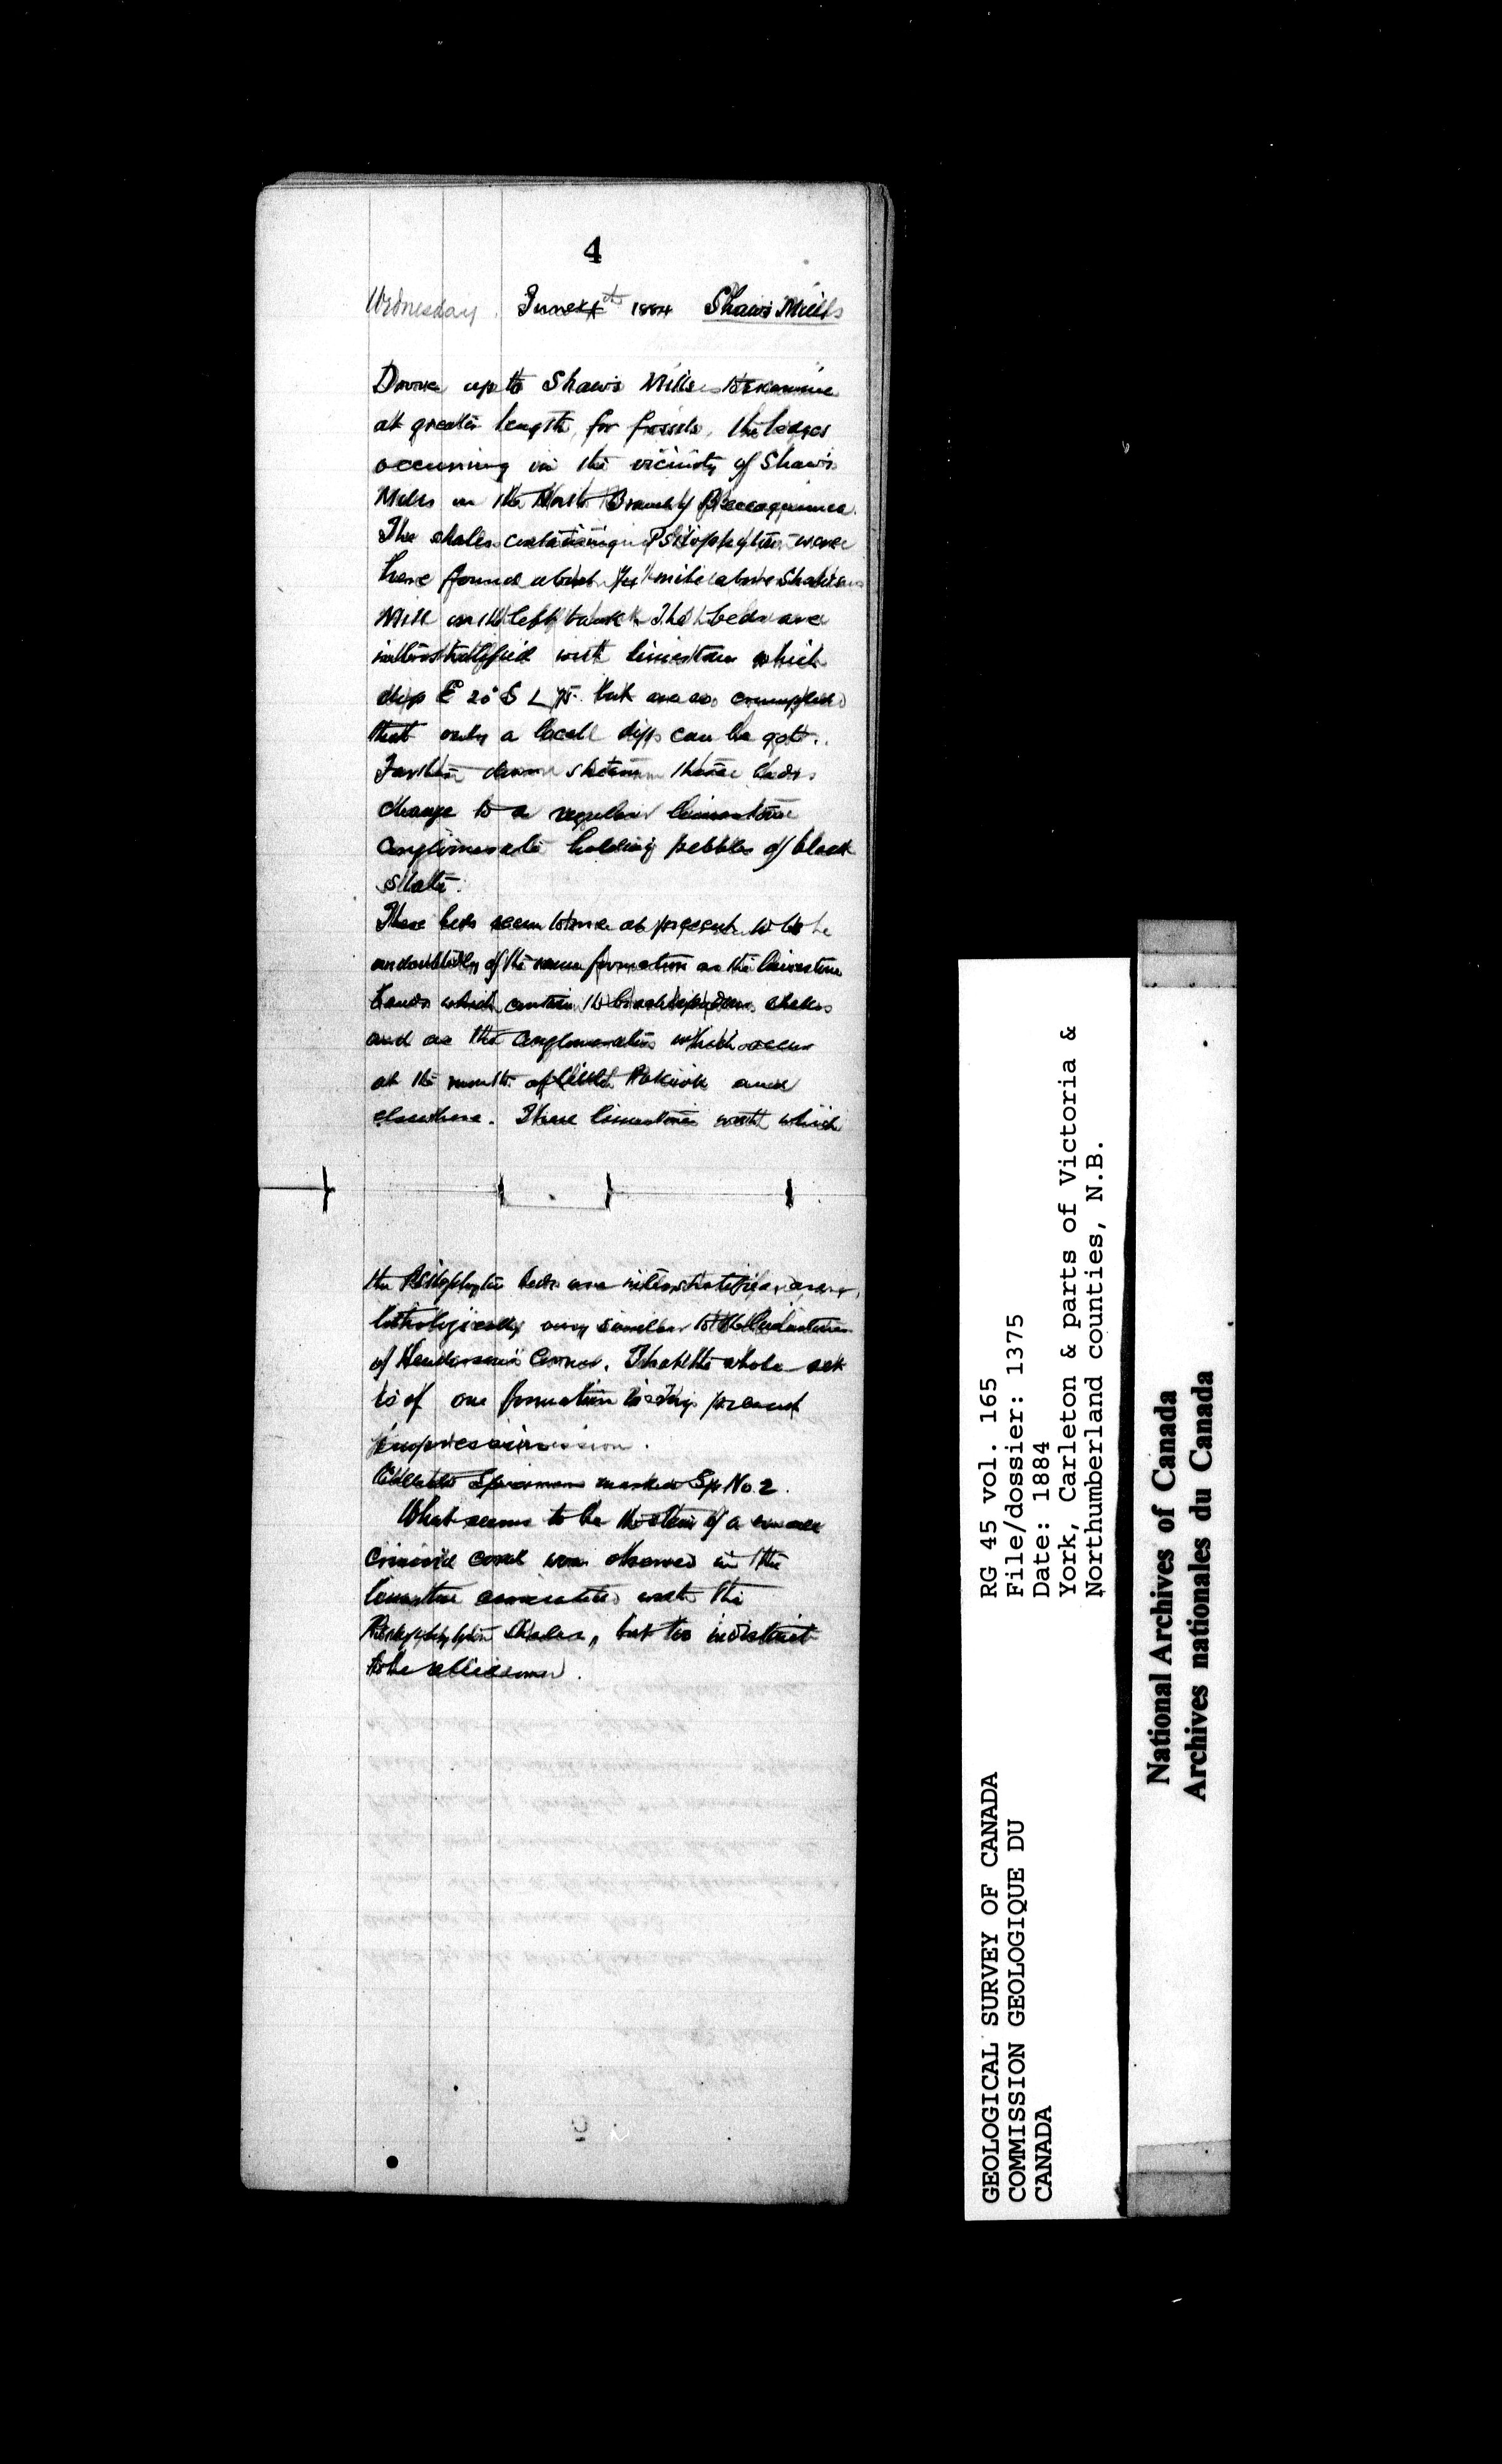 4
Wednesday June 4th 1884 Shaws Mills
Drove up to Shaws Mills to examine
at greater length, for fossils, the ledges
occurring in the vicinity of Shaws
Mills on the North Branch of Becaguimec.
The shales containing Psilophyton were
here found about 1/4 mile above Shaws
Mill on the left bank. The beds are
interstratified with limestone which
dip E 20° S L 75. but are so crumpled
that only a local dip can be got.
Farther down stream these beds
change to a regular limestone
conglomerate holding pebbles of black
slate.
These beds seem to me at present to be
undoubtedly of the same formation as the limestone
bands which contain the brachiopodous shales
and as the conglomerates which occur
at the mouth of Little Pokiok and
elsewhere. These limestones with which
the Psilophyton beds are interstratified are
lithologically very similar to the limestones
of Hendersons Corner. That the whole set
is of one formation is my present
impression.
Collected Specimens marked Sp No. 2.
What seems to be the stem of a small
crinoid coral was observed in the
limestone associated with the
Psilophyton shales, but too indistinct
to be
RG 45 vol. 165
File/dossier: 1375
Date: 1884
York, Carleton & parts of Victoria &
Northumberland counties, N.B.
GEOLOGICAL SURVEY OF CANADA
COMMISSION GEOLOGIQUE DU
CANADA
National Archives of Canada
Archives nationales du Canada